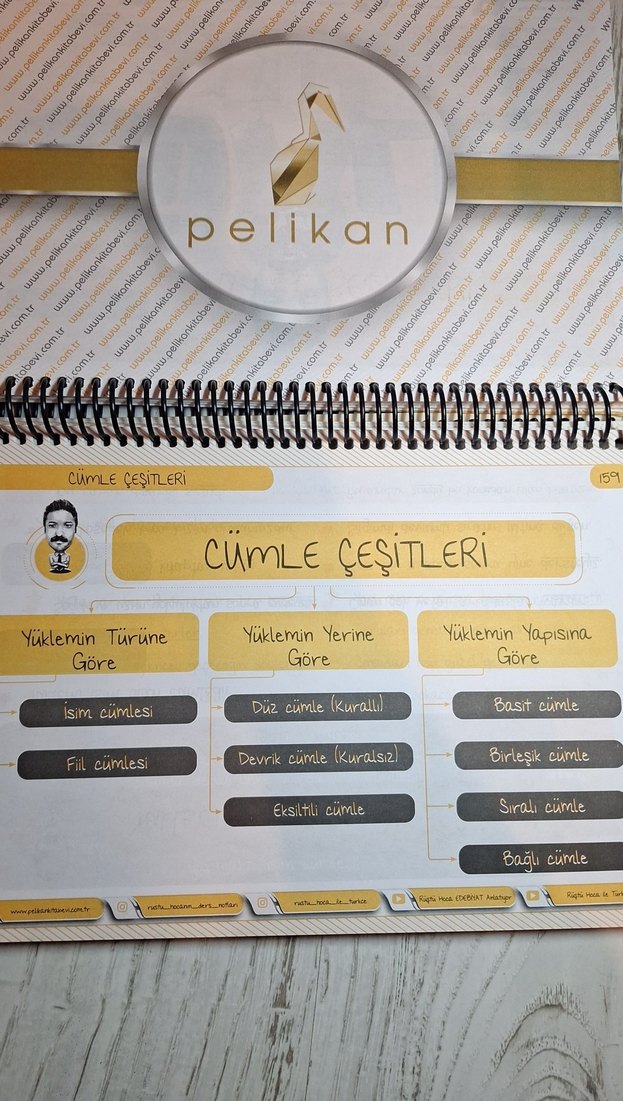 www.pelikankitabevi.com.tr
pelikan
CÜMLE ÇEŞİTLERİ
159
CÜMLE ÇEŞİTLERİ
Yüklemin Türüne
Göre
İsim cümlesi
Fiil cümlesi
Yüklemin Yerine
Göre
Düz cümle (Kurallı)
Devrik cümle (Kuralsız)
Eksiltili cümle
Yüklemin Yapısına
Göre
Basit cümle
Birleşik cümle
Sıralı cümle
Bağlı cümle
www.pelikankitabevi.com.tr
rustu_hocanın_ders_notları
rustu_hoca_ile_turkce
Rüştü Hoca EDEBİYAT Anlatıyor
Rüştü Hoca ile